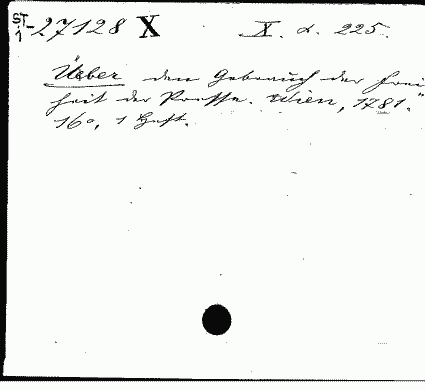 ST 1-27128 X X. d. 225.
Über den Gebrauch der Frei
heit der Presse. Wien, 1781.
16°, 1 Heft.